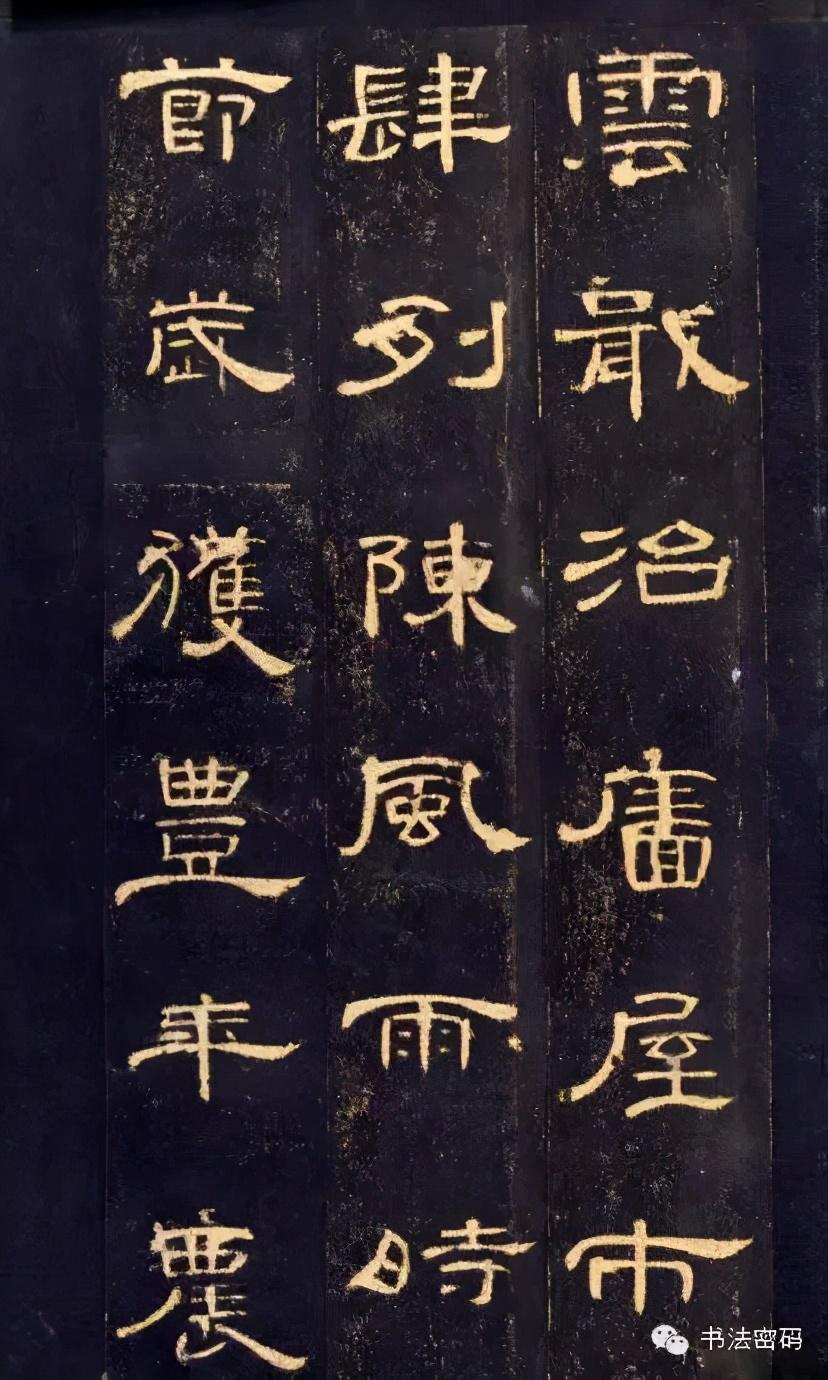 雲戢治廧屋市
肆列陳風雨時
節歲獲豊年農
书法密码